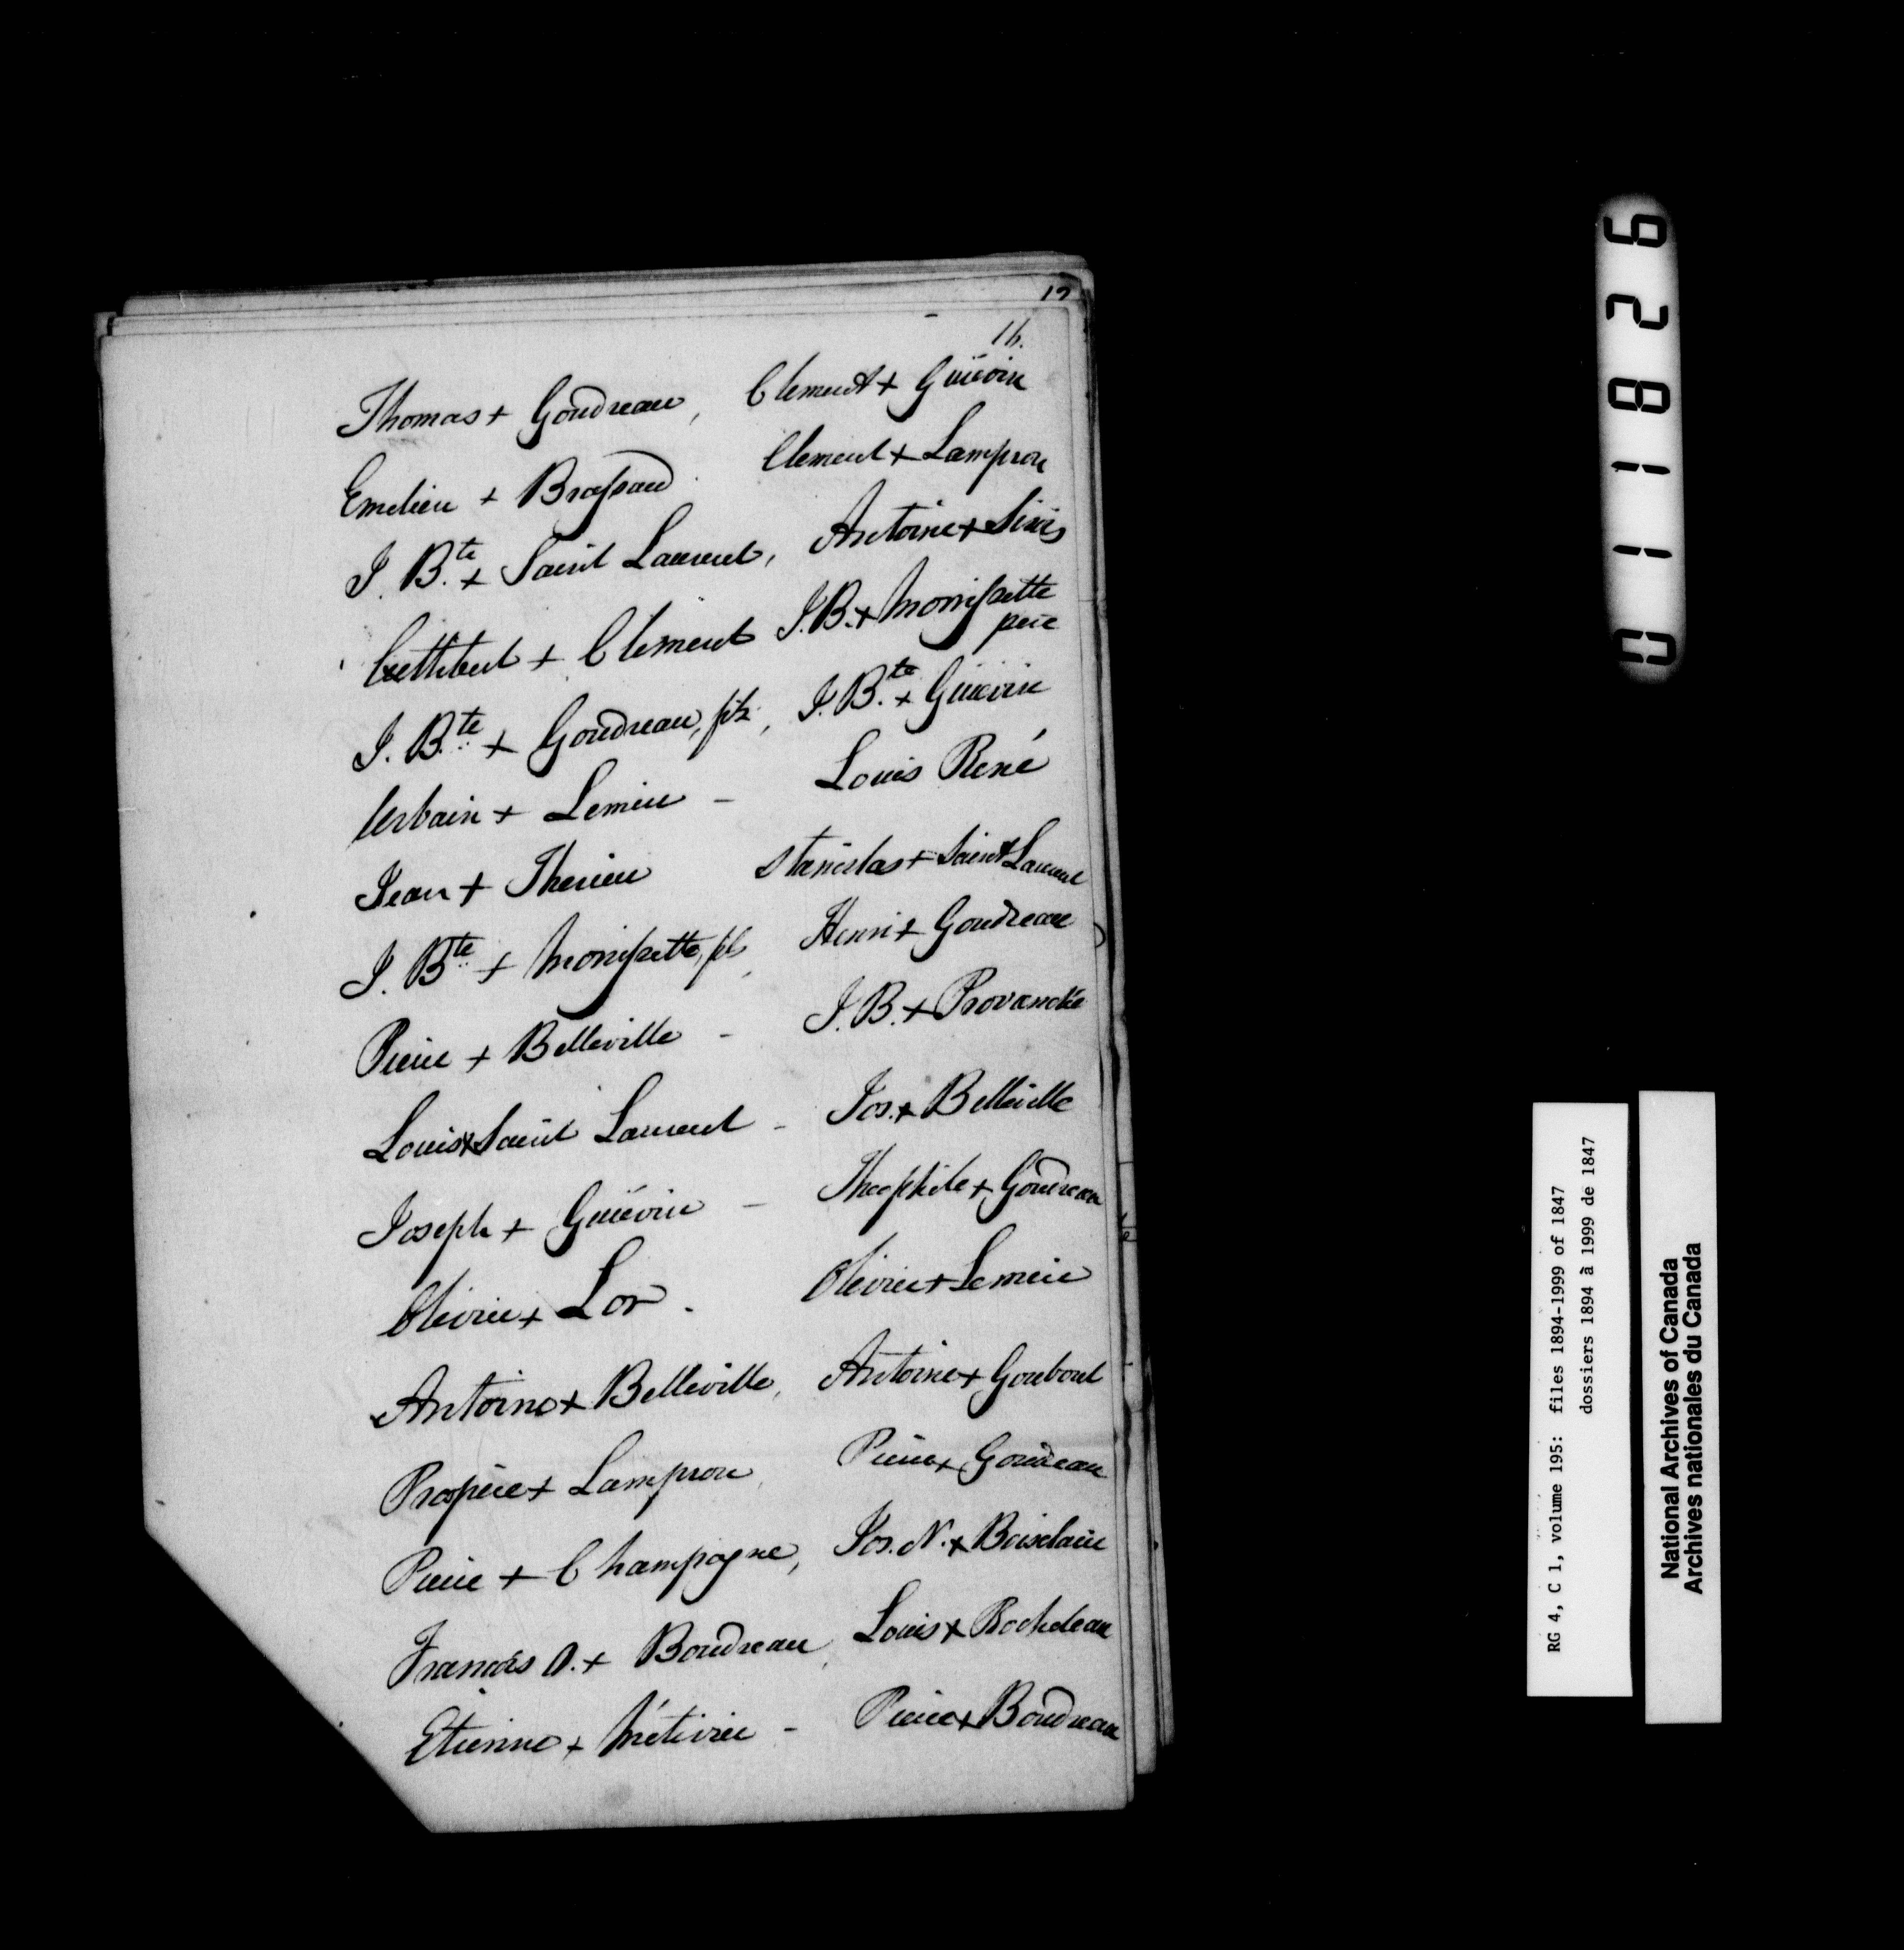 16.
Thomas + Goudreau, Clement + Guévin
Emelien + Brassard. Clement + Lampron
J. Bte + Saint Laurent, Antoine + Sivis
Cuthbert + Clement J.B. + Morrissette père
J. Bte + Goudreau, fils, J. Bte + Guévin
Urbain + Lemieu - Louis René
Jean + Therieu Stanislas + Saint Laurent
J. Bte + Morrissette, fils, Henri + Goudreau
Pierre + Belleville - J.B. + Provanché
Louis + Saint Laurent - Jos. + Belleville
Joseph + Guévin - Theophile + Goudreau
Olivier + Lor. Olivier + Lemieu
Antoine + Belleville, Antoine + Goubout
Prospère + Lampron, Pierre + Goudreau
Pierre + Champagne, Jos. N. + Boisclair
François O. + Boudreau, Louis + Rocheleau
Etienne + Métivier - Pierre + Boudreau
011826
RG 4, C 1, volume 195: files 1894-1999 of 1847
dossiers 1894 à 1999 de 1847
National Archives of Canada
Archives nationales du Canada